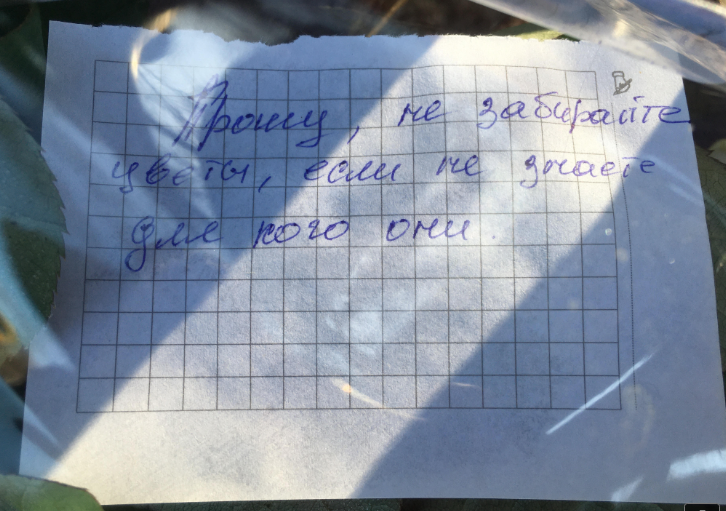 Прошу, не забирайте
цветы, если не знаете
для кого они.